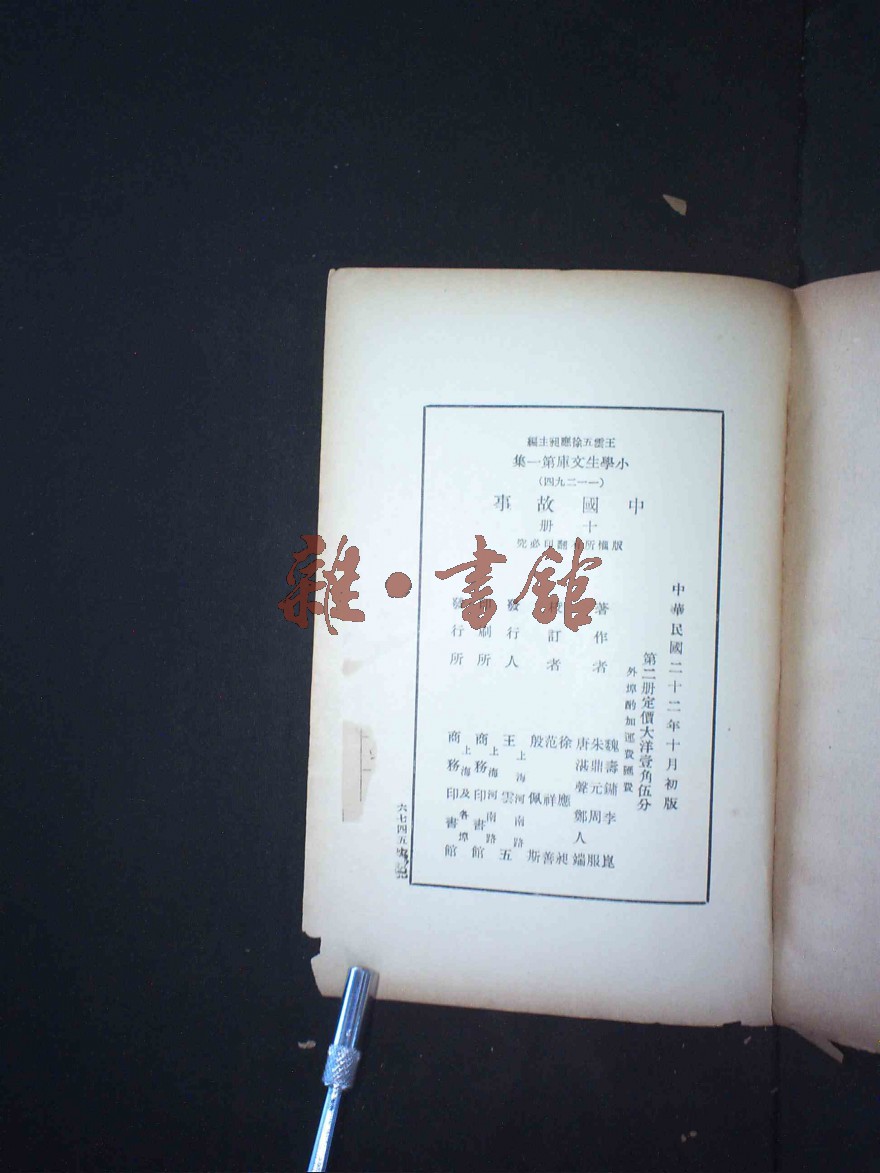 王雲五徐應昶主編
小學生文庫第一集
(一一二九四)
中國故事
十册
版權所有翻印必究
中華民國二十二年十月初版
第二册定價大洋壹角伍分
外埠酌加運費匯費
著作者 魏壽鏞 李崑
朱鼎元 周服
唐湛聲 鄭人端
校訂者 徐應昶
范祥善
殷佩斯
發行人 上海河南路 王雲五
印刷所 上海河南路 商務印書館
發行所 上海及各埠 商務印書館
六七四五
雜·書館